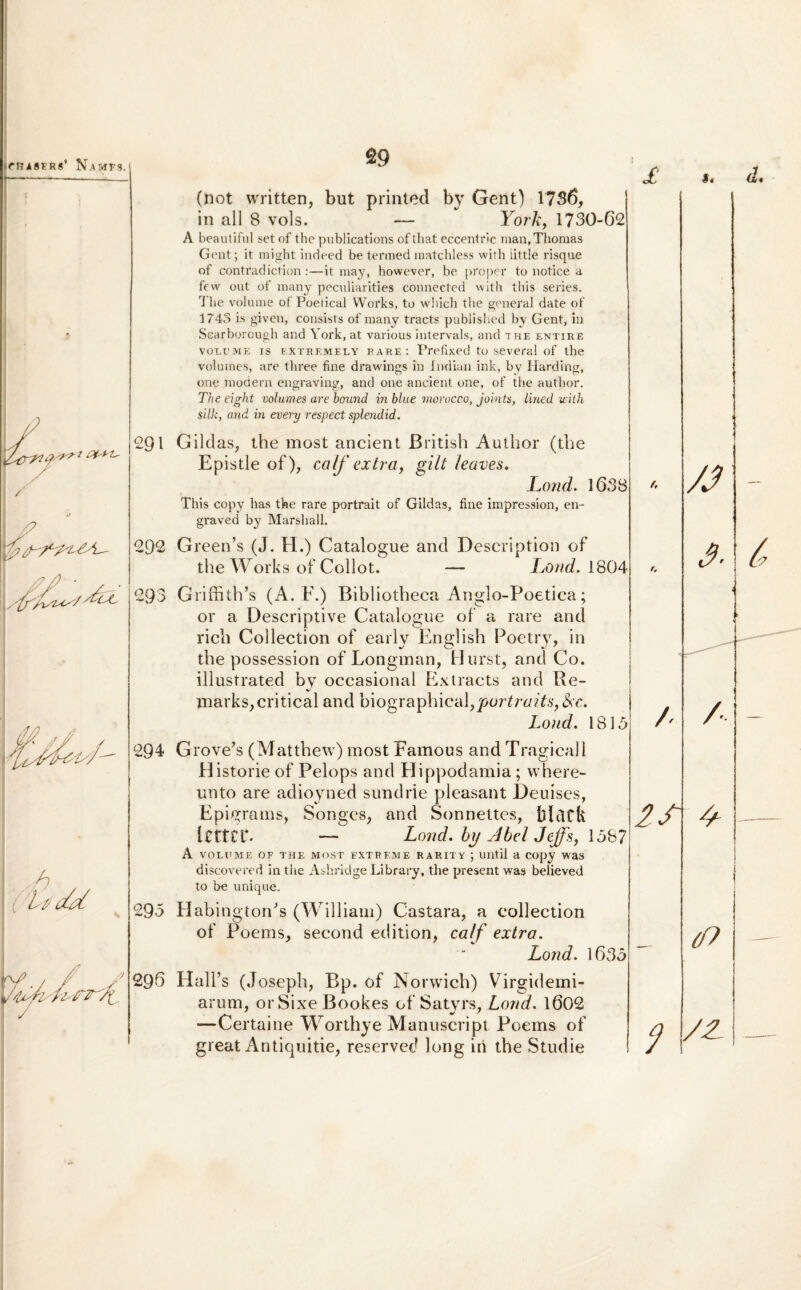 29
CHASERS' NAMES.
£ s. d.
(not written, but printed by Gent) 1736,
in all 8 vols. — York, 1730-62
A beautiful set of the publications of that eccentric man, Thomas
Gent; it might indeed be termed matchless with little risque
of contradiction:—it may, however, be proper to notice a
few out of many peculiarities connected with this series.
The volume of Poetical Works, to which the general date of
1743 is given, consists of many tracts published by Gent, in
Scarborough and York, at various intervals, and THE ENTIRE
VOLUME IS EXTREMELY RARE: Prefixed to several of the
volumes, are three fine drawings in Indian ink, by Harding,
one modern engraving, and one ancient one, of the author.
The eight volumes are bound in blue morocco, joints, lined with
silk, and in every respect splendid.
291 Gildas, the most ancient British Author (the
Epistle of), calf extra, gilt leaves.
Lond. 1638 13 —
This copy has the rare portrait of Gildas, fine impression, en-
graved by Marshall.
292 Green's (J. H.) Catalogue and Description of
the Works of Collot. — Lond. 1804 3. 6
293 Griffith's (A. F.) Bibliotheca Anglo-Poetica;
or a Descriptive Catalogue of a rare and
rich Collection of early English Poetry, in
the possession of Longman, Hurst, and Co.
illustrated by occasional Extracts and Re-
marks, critical and biographical, portraits, &c.
Lond. 1815 1. 1. —
294 Grove's (Matthew) most Famous and Tragicall
Historie of Pelops and Hippodamia; where-
unto are adioyned sundrie pleasant Deuises,
Epigrams, Songes, and Sonnettes, black
letter. — Lond. by Abel Jeffs, 1587 25 4 —
A VOLUME OF THE MOST EXTREME RARITY; until a copy was
discovered in the Ashridge Library, the present was believed
to be unique.
295 Habington's (William) Castara, a collection
of Poems, second edition, calf extra.
Lond. 1635
296 Hall's (Joseph, Bp. of Norwich) Virgidemi-
arum, or Sixe Bookes of Satyrs, Lond. 1602
—Certaine Worthye Manuscript Poems of
great Antiquitie, reserved long in the Studie 9 12 —